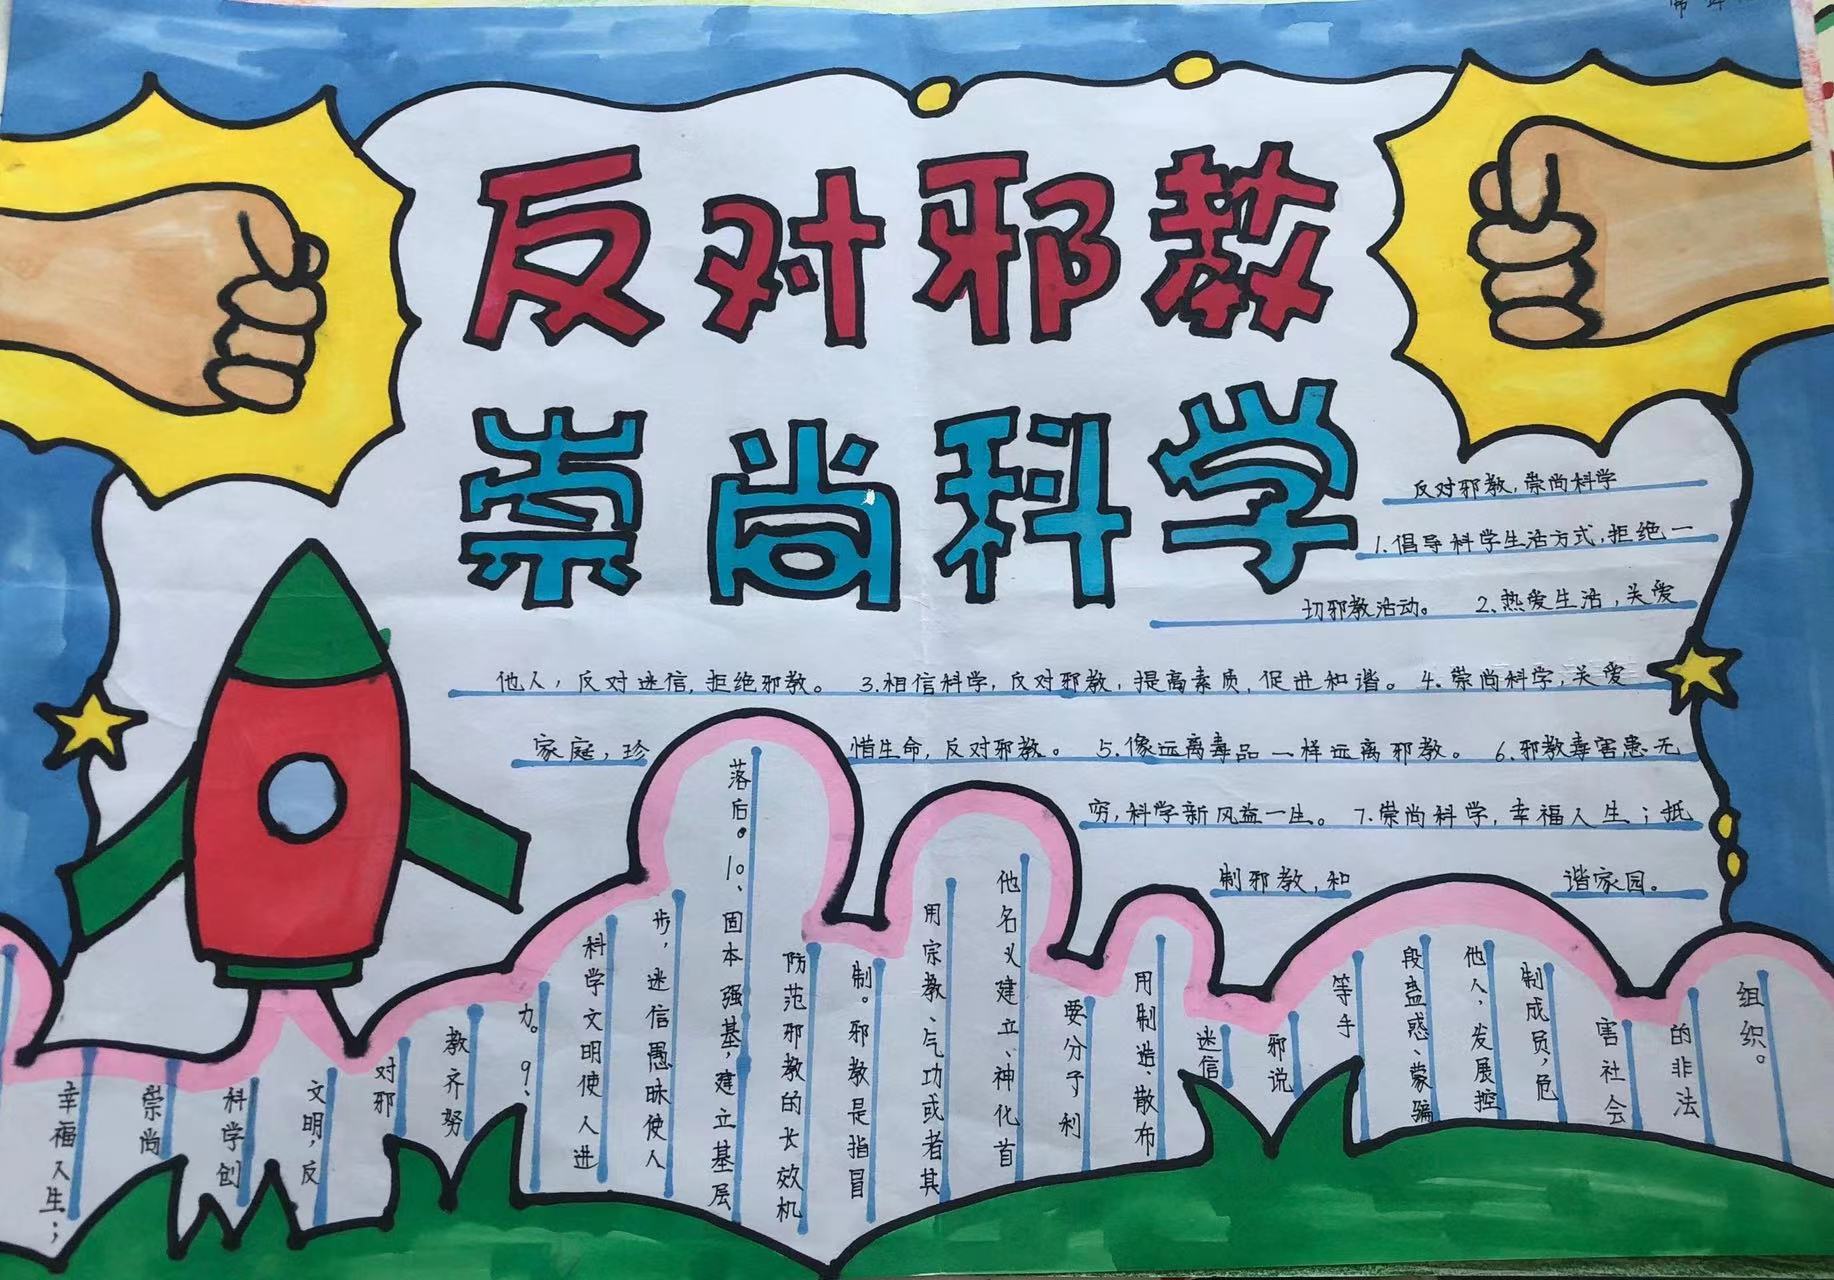 反对邪教
崇尚科学
反对邪教,崇尚科学
1.倡导科学生活方式,拒绝一
切邪教活动。 2、热爱生活,关爱
他人,反对迷信,拒绝邪教。 3.相信科学,反对邪教,提高素质,促进和谐。 4、崇尚科学,关爱
家庭,珍惜生命,反对邪教。 5、像远离毒品一样远离邪教。 6、邪教毒害患无
穷,科学新风益一生。 7.崇尚科学,幸福人生;抵
制邪教,和谐家园。
幸福人生;
崇尚
科学创
文明,反
对邪
教齐努
力。9、
科学文明使人进
步,迷信愚昧使人
落后。10、固本强基,建立基层
防范邪教的长效机
制。邪教是指冒
用宗教、气功或者其
他名义建立、神化首
要分子利
用制造、散布
迷信
邪说
等手
段蛊惑、蒙骗
他人,发展控
制成员,危
害社会
的非法
组织。